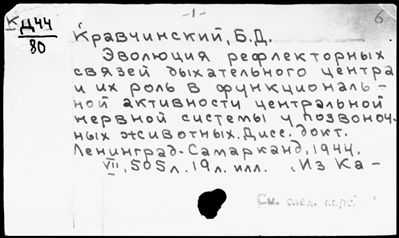 К Ц44
80
-1-
6
Кравчинский, Б.Д.
Эволюция рефлекторных
связей дыхательного центра
и их роль в функциональ-
ной активности центральной
нервной системы у позвоноч-
ных животных. Дисс. докт.
Ленинград-Самарканд, 1944.
VII, 505л. 19л. илл. , Из Ка-
См. след. карт.